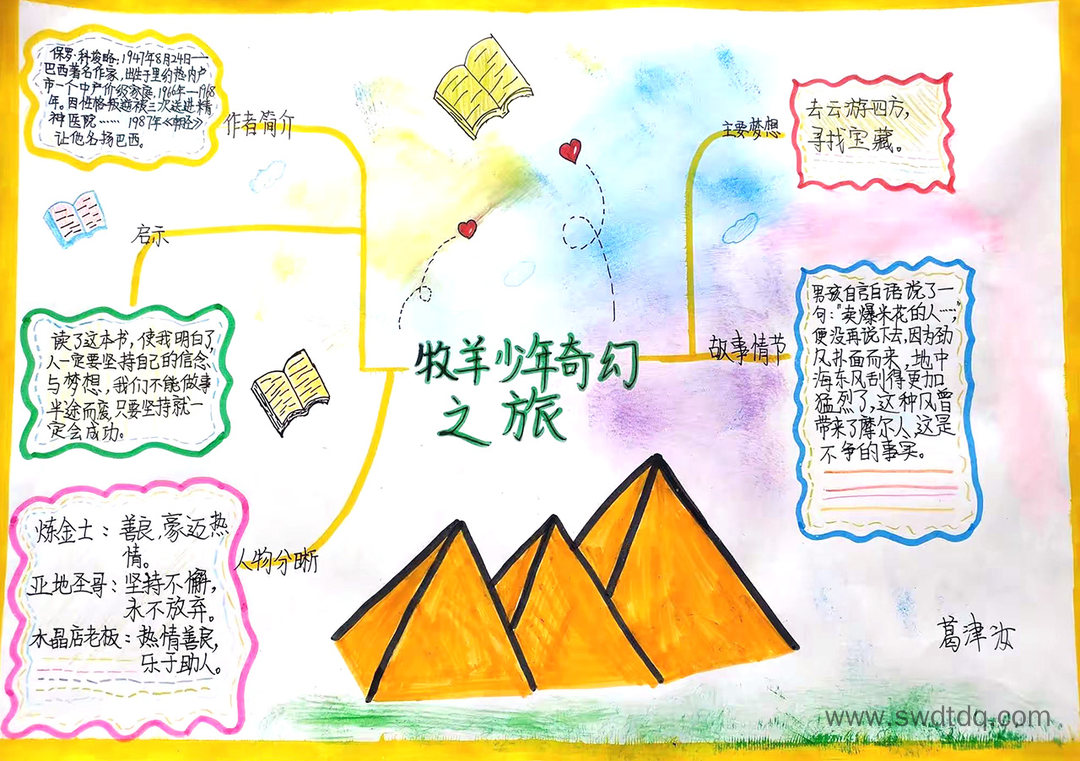 保罗·科埃略,1947年8月24日——
巴西著名作家,出生于里约热内卢
市一个中产阶级家庭,1966年—1968
年。因性格叛逆被三次送进精
神医院…… 1987年《
让他名扬巴西。
作者简介
启示
读了这本书,使我明白了
人一定要坚持自己的信念,
与梦想,我们不能做事
半途而废,只要坚持就一
定会成功。
炼金士:善良,豪迈热
情。
亚地圣哥:坚持不懈,
永不放弃。
水晶店老板:热情善良,
乐于助人。
人物分晰
牧羊少年奇幻
之旅
主要梦想
去云游四方,
寻找宝藏。
故事情节
男孩自言自语说了一
句:“卖爆米花的人……”,
便没再说下去,因为劲
风扑面而来,地中
海东风刮得更加
猛烈了,这种风曾
带来了摩尔人,这是
不争的事实。
葛津汝
www.swdtdq.com